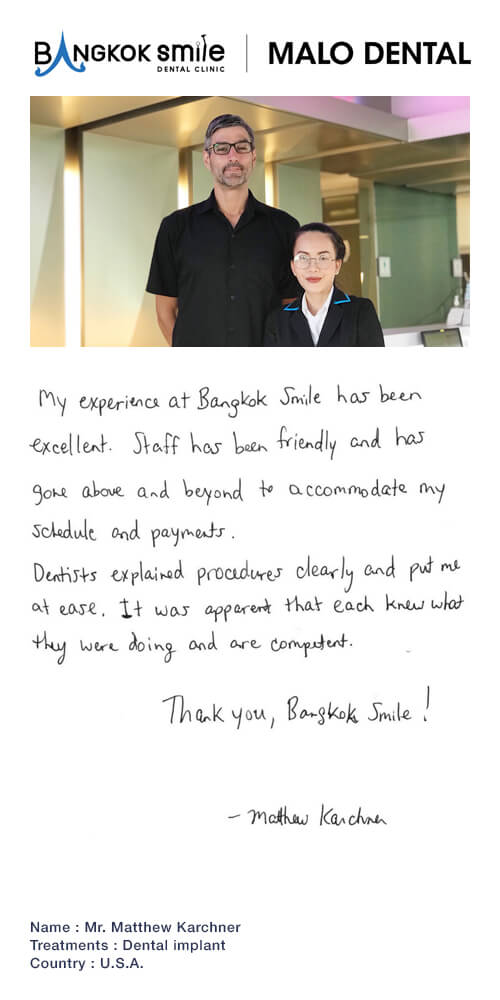 BANGKOK smile
DENTAL CLINIC
MALO DENTAL
My experience at Bangkok Smile has been
excellent. Staff has been friendly and has
gone above and beyond to accommodate my
schedule and payments.
Dentists explained procedures clearly and put me
at ease. It was apparent that each knew what
they were doing and are competent.
Thank you, Bangkok Smile!
- Matthew Karchner
Name : Mr. Matthew Karchner
Treatments : Dental implant
Country : U.S.A.